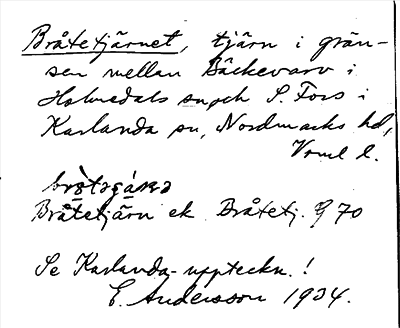 Bråtetjärnet, tjärn i grän-
sen mellan Bäckevarv i
Holmedals sn och S. Fors i
Karlanda sn, Nordmarks hd,
Vrml l.
Bråtetjärn ek. Bråtetj. G 70
Se Karlanda-uppteckn.!
E. Andersson 1934.